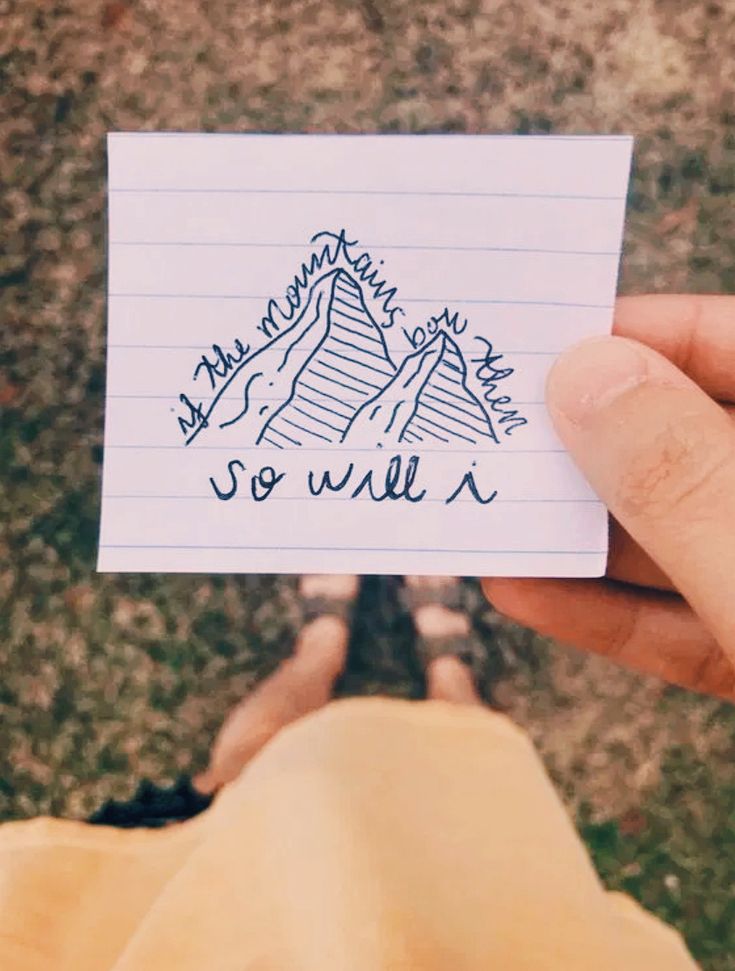 if the mountains bow then
so will i